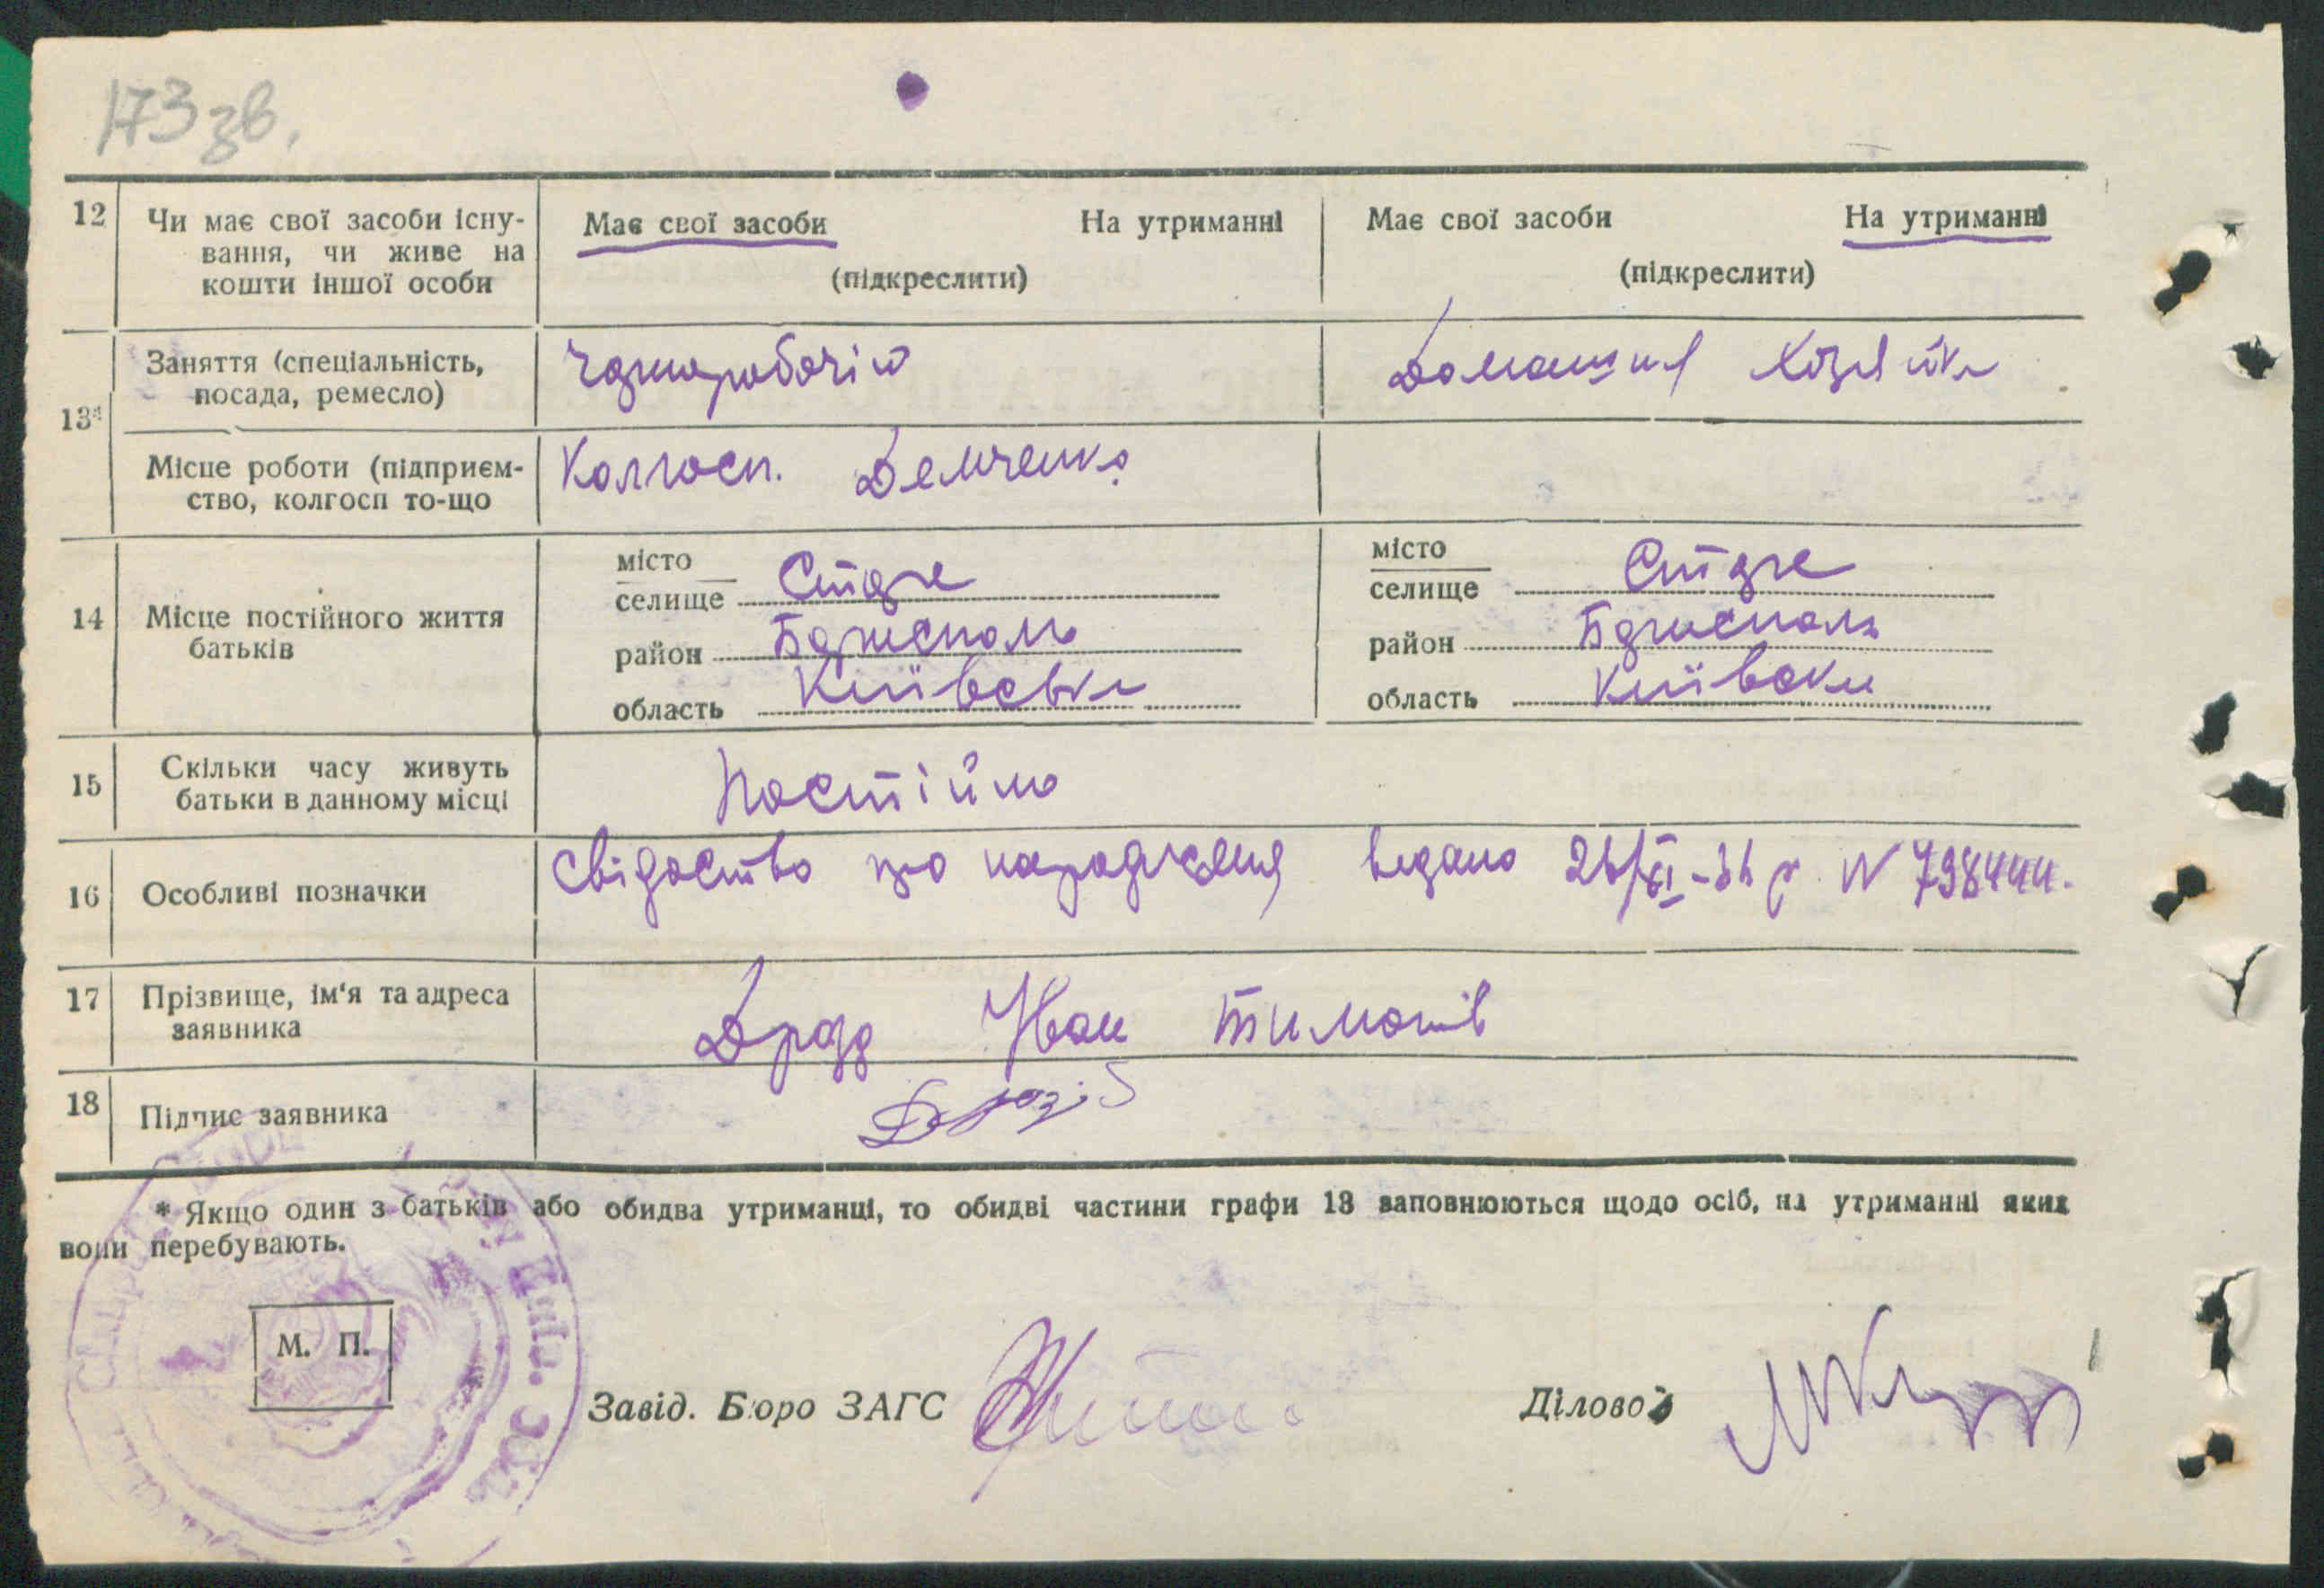 173 зв.
12 Чи має свої засоби існу- Має свої засоби На утриманні Має свої засоби На утриманні
вання, чи живе на
кошти іншої особи (підкреслити) (підкреслити)
Заняття (спеціальність, Чорноробочій Домашня хозяйка
посада, ремесло)
13*
Місце роботи (підприєм- Колгосп. Демченка
ство, колгосп то-що
14 Місце постійного життя
батьків
місто
селище Старе
район Бориспол
область Київська
місто
селище Старе
район Бориспол
область Київски
15 Скільки часу живуть Постійно
батьки в данному місці
16 Особливі позначки свідоство про народженя видано 26/XI-36 р. N 798444.
17 Прізвище, ім'я та адреса Дрозд Иван
заявника
18 Підпис заявника Дрозд
* Якщо один з батьків або обидва утриманці, то обидві частини графи 13 заповнюються щодо осіб, на утриманні яких
вони перебувають.
М. П.
Завід. Бюро ЗАГС Діловод